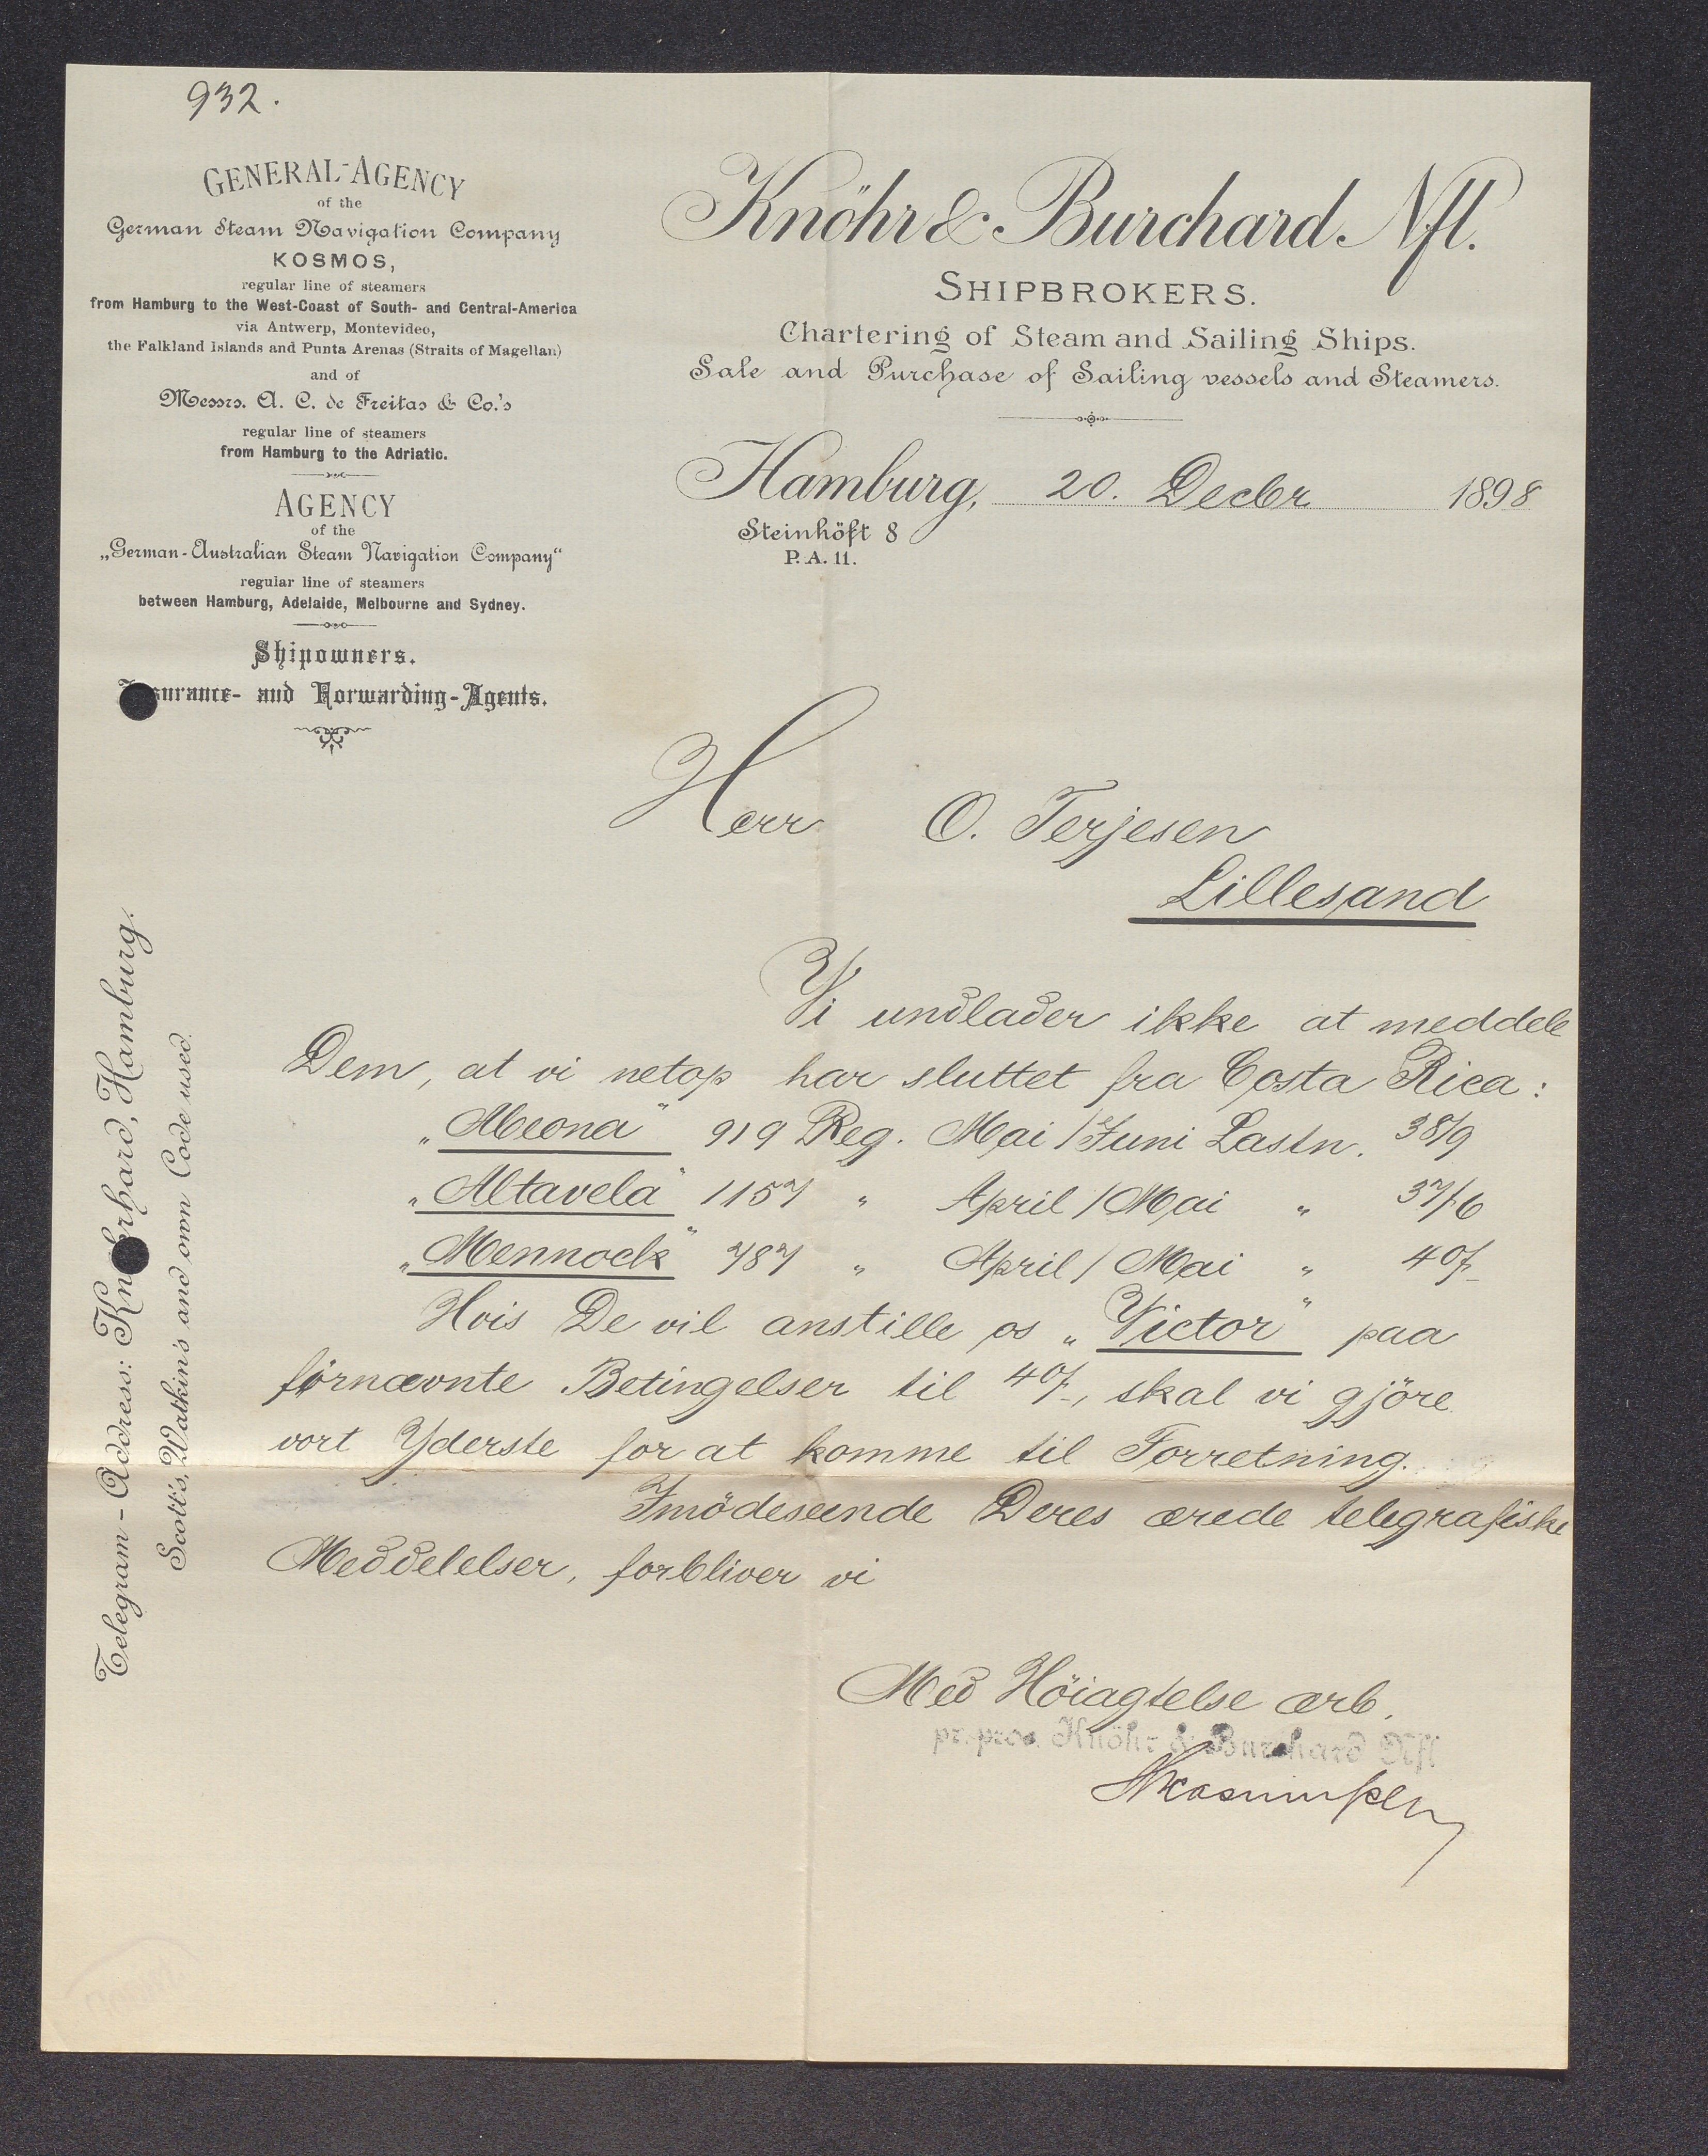 932.
GENERAL-AGENCY
of the
German Steam Navigation Company
KOSMOS,
regular line of steamers
from Hamburg to the West-Coast of South- and Central-America
via Antwerp, Montevideo,
the Falkland Islands and Punta Arenas (Straits of Magellan)
and of
Messrs. A. C. de Freitas & Co.'s
regular line of steamers
from Hamburg to the Adriatic.
AGENCY
of the
„German-Australian Steam Navigation Company“
regular line of steamers
between Hamburg, Adelaide, Melbourne and Sydney.
Shipowners.
and Forwarding-Agents.
Knöhr & Burchard Nfl.
SHIPBROKERS.
Chartering of Steam and Sailing Ships.
Sale and Purchase of Sailing vessels and Steamers.
Hamburg, 20. Decbr 1898
Steinhöft 8
P. A. 11.
Telegram-Address: Hamburg.
Scott's, Watkin's and own Code used.
Herr O. Terjesen
Lillesand
Vi undlader ikke at meddele
Dem, at vi netop har sluttet fra Costa Rica:
„Abeona“ 919 Reg. Mai/Juni Lastn. 38/9
„Altavela“ 1157 " April/Mai " 37/6
„Mennock“ 787 " April/Mai " 40/-
Hvis De vil anstille os „Victor“ paa
förnævnte Betingelser til 40/-, skal vi gjöre
vort Yderste for at komme til Forretning.
Imödeseende Deres ærede telegrafiske
Meddelelser, forbliver vi
Med Höiagtelse ærb.
pr. proa. Knöhr & Burchard Nfl